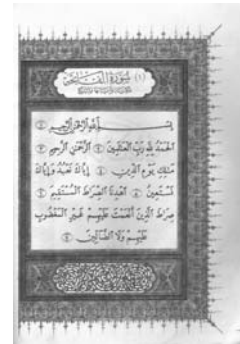 (١) سُورَةُ الْفَاتِحَةِ
بِسْمِ اللَّهِ الرَّحْمَٰنِ الرَّحِيمِ ۝١
الْحَمْدُ لِلَّهِ رَبِّ الْعَالَمِينَ ۝٢ الرَّحْمَٰنِ الرَّحِيمِ ۝٣
مَالِكِ يَوْمِ الدِّينِ ۝٤ إِيَّاكَ نَعْبُدُ وَإِيَّاكَ
نَسْتَعِينُ ۝٥ اهْدِنَا الصِّرَاطَ الْمُسْتَقِيمَ ۝٦
صِرَاطَ الَّذِينَ أَنْعَمْتَ عَلَيْهِمْ غَيْرِ الْمَغْضُوبِ
عَلَيْهِمْ وَلَا الضَّالِّينَ ۝٧